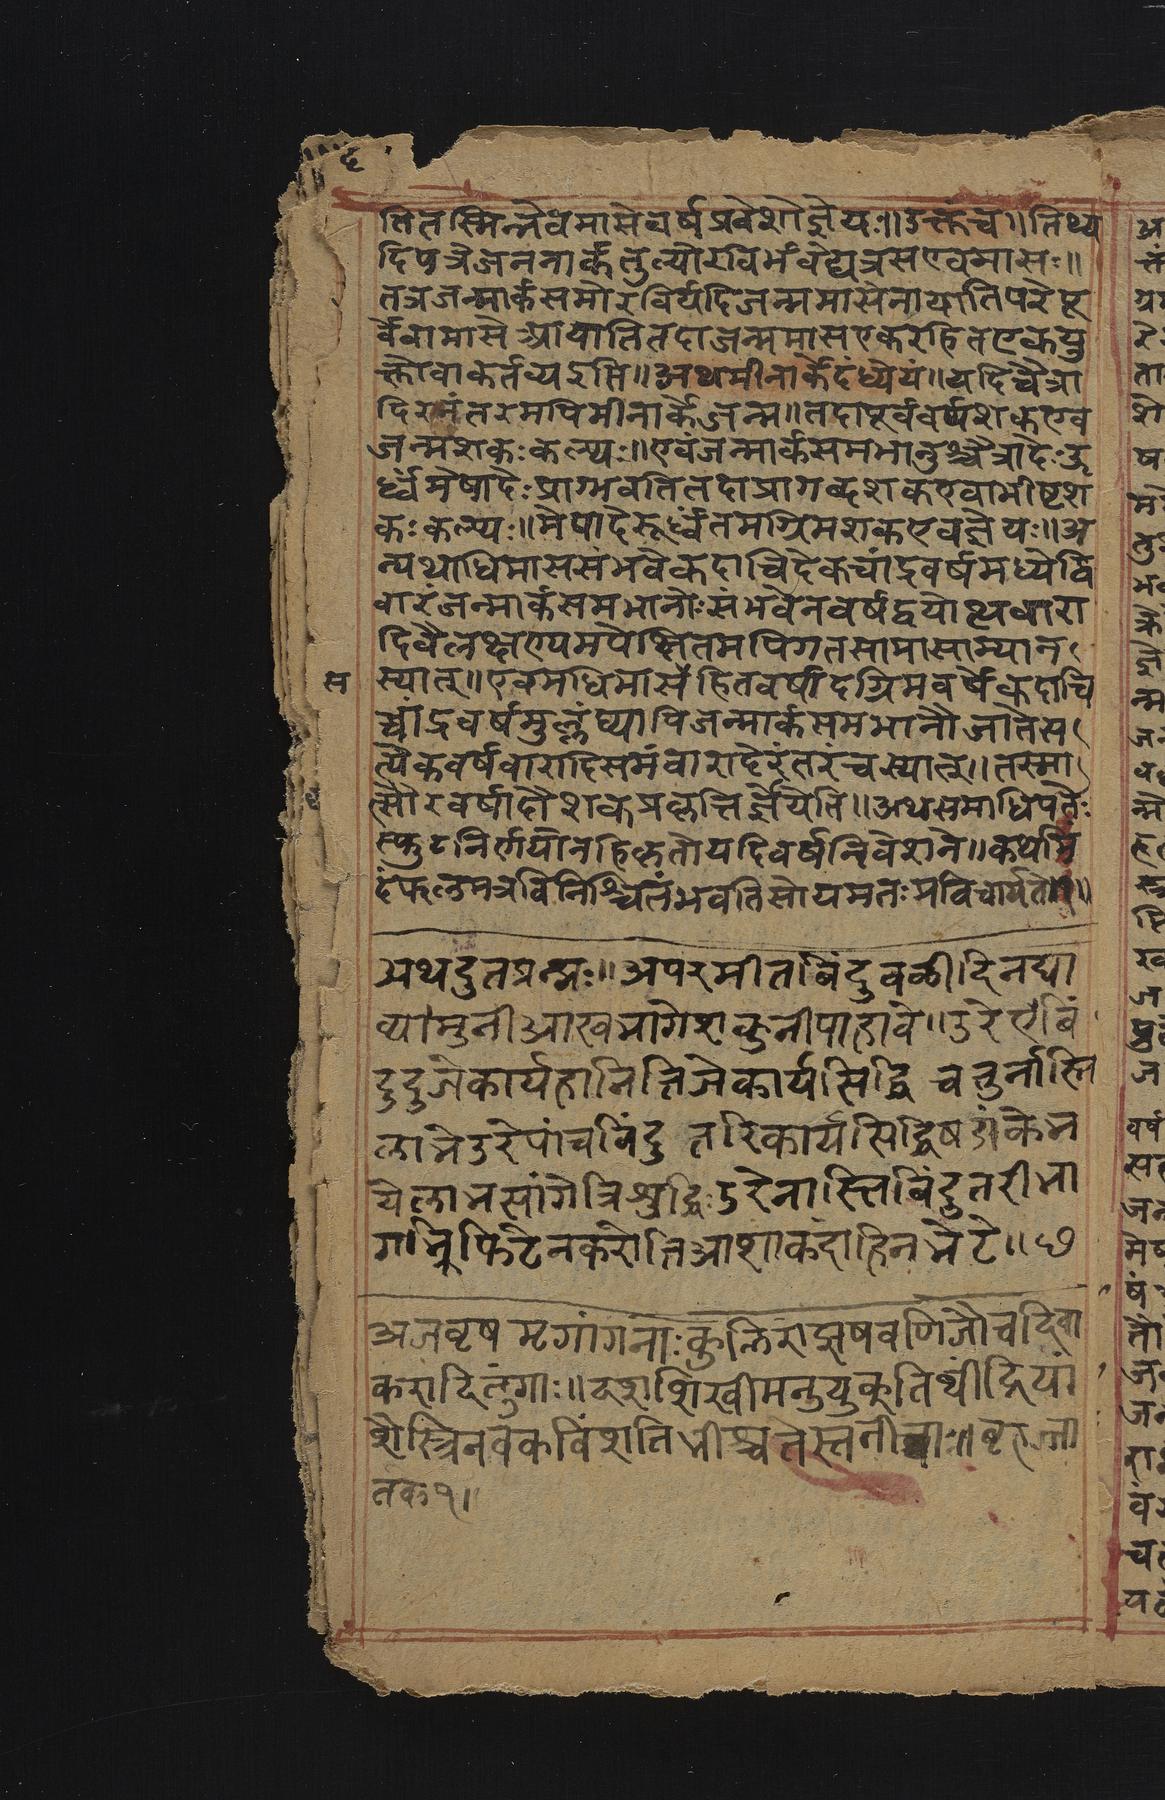 तितस्मिन्नेवमासेवर्षप्रवेशोज्ञेयः॥उक्तंच॥तिथ्य
दिपत्रेजननार्कतुल्योरविर्भवेद्यत्रसएवमासः॥
तत्रजन्मार्कसमोरविर्यदिजन्ममासेनायातिपरेपू
र्वेवामासेआयातितदाजन्ममासएकरहितएकयु
क्तोवाकर्तव्यइति॥अथमीनार्केदंध्येयं॥यदिचैत्रा
दिरनंतरमपिमीनार्केजन्म॥तदापूर्ववर्षशकएव
जन्मशकःकल्प्यः॥एवंजन्मार्कसमभानुश्चैत्रादेःऊ
र्ध्वंमेषादेःप्राग्भवतितदाप्रागब्दशकएवाभीष्टश
कःकल्प्यः॥मेषादेरूर्ध्वंतमग्रिमशकएवज्ञेयः॥अ
न्यथाधिमाससंभवेकदाचिदेकचांद्रवर्षमध्येद्वि
वारंजन्मार्कसमभानोःसंभवेनवर्षद्वयोत्थवारा
दिवैलक्षण्यमपेक्षितमपिगतसामासाम्यान
स स्यात्॥एवमधिमासंहितवर्षादग्रिमवर्षेकदाचि
च्चांद्रवर्षमुल्लंघ्यापिजन्मार्कसमभानौजातेस
त्येकवर्षवारादिसमंवारादेरंतरंचस्यात्॥तस्मा
त्सौरवर्षादौशकप्रवृत्तिर्ज्ञेयेति॥अथसमाधिपतेः
स्फुटनिर्णयोनहिकृतोयदिवर्षनिवेशने॥कथमि
दंफलमत्रविनिश्चितंभवतिसोयमतःप्रविचार्यते॥१॥
अथदुतप्रश्नः॥अपरमीतबिंदुवळीदिनद्या
व्यामुनीआखभागेशकुनीपाहावे॥उरेएबिं
दुदुजेकार्यहानितिजेकार्यसिद्धि चतुर्नास्ति
लाभेउरेपांचबिंदु तरिकार्यसिद्धिषडांकेभ
येलाभसांगेत्रिशुद्धिःउरेनास्तिबिंदुतरीभा
गनुफिटेनकरोतिआशाकदाहिनभेटे॥६७
अजवृषमृगांगनाःकुलिराझषवणिजौचदिवा
करादितुंगाः॥दशशिखीमनुयुक्तिथींद्रियां
शैस्त्रिनवकविंशतिभीश्चतेस्तनीचाः॥बृहज्जा
तक१॥